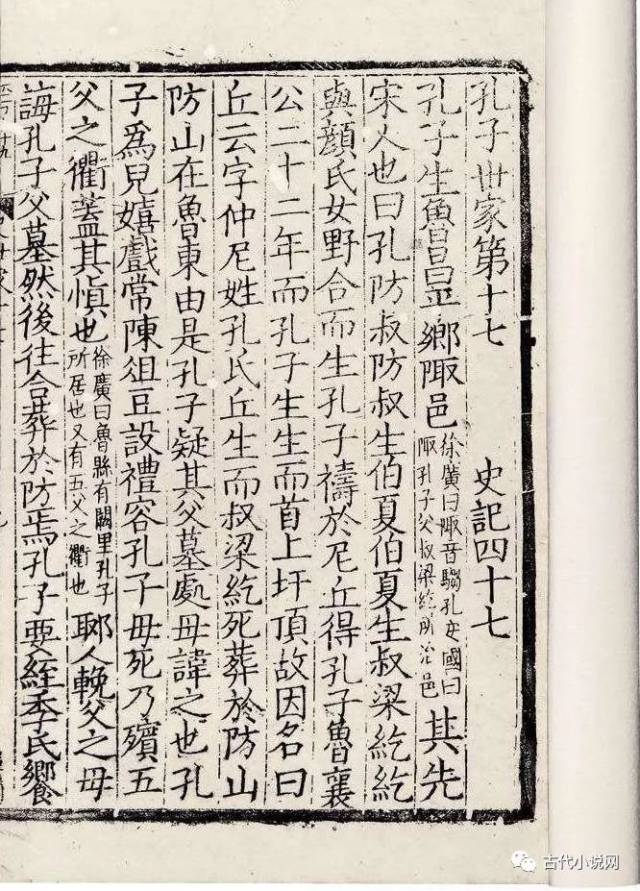 孔子世家第十七 史記四十七
孔子生魯昌平鄉陬邑 徐廣曰陬音騶孔安國曰 陬孔子父叔梁紇所治邑 其先
宋人也曰孔防叔防叔生伯夏伯夏生叔梁紇紇
與顏氏女野合而生孔子禱於尼丘得孔子魯襄
公二十二年而孔子生生而首上圩頂故因名曰
丘云字仲尼姓孔氏丘生而叔梁紇死葬於防山
防山在魯東由是孔子疑其父墓處母諱之也孔
子爲兒嬉戲常陳俎豆設禮容孔子母死乃殯五
父之衢蓋其慎也 徐廣曰魯縣有闕里孔子 所居也又有五父之衢也 郰人輓父之母
誨孔子父墓然後往合葬於防焉孔子要絰季氏饗
古代小说网